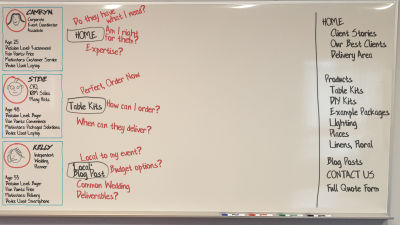 CAMRYN
Corporate
Event Coordinator
Associate
Age: 25
Decision Level: Recommend
Pain Point: Price
Motivators: Customer Service
Device Used: Laptop
Do they have what I need?
HOME
Am I right for them?
Expertise?
STEVE
CFO,
Many Hats
Age: 48
Decision Level: Buyer
Pain Points: Convenience
Motivators: Packaged Solutions
Device Used: Laptop
Perfect, Order Now
Table Kits
How can I order?
When can they deliver?
KELLY
Independent
Wedding
Planner
Decision Level: Buyer
Pain Points: Price
Motivators: Delivery
Device Used: Smartphone
Local to my event?
Local Blog Post
Budget options?
Common Wedding
Deliverables?
HOME
Client Stories
Our Best Clients
Delivery Area
Products
Table Kits
DIY Kits
Example Packages
Lighting
Places
Linens, Floral
Blog Posts
CONTACT US
Full Quote Form